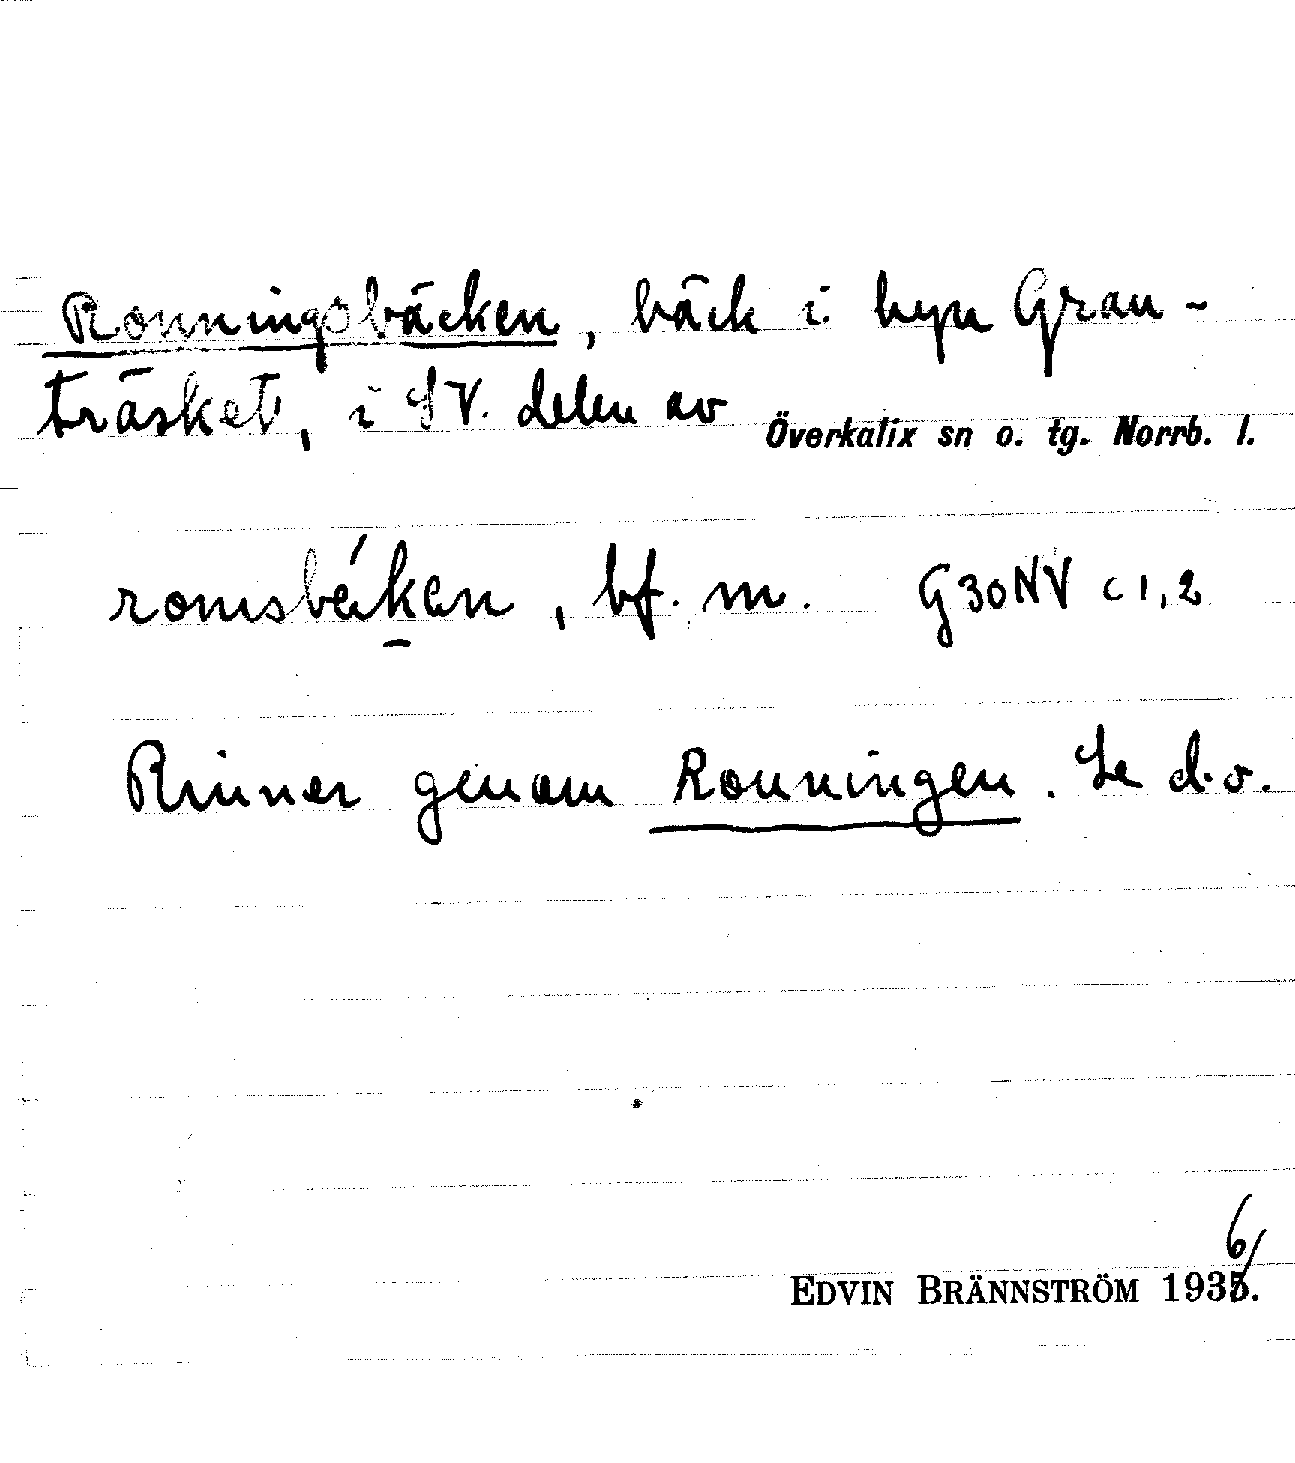 Ronningsbäcken, bäck i byn Gran-
träsket, i SV. delen av Överkalix sn o. tg. Norrb. l.
romsbéken, bf. m. G30NV c 1,2
Rinner genom Ronningen. Se d.o.
6/
EDVIN BRÄNNSTRÖM 1935.